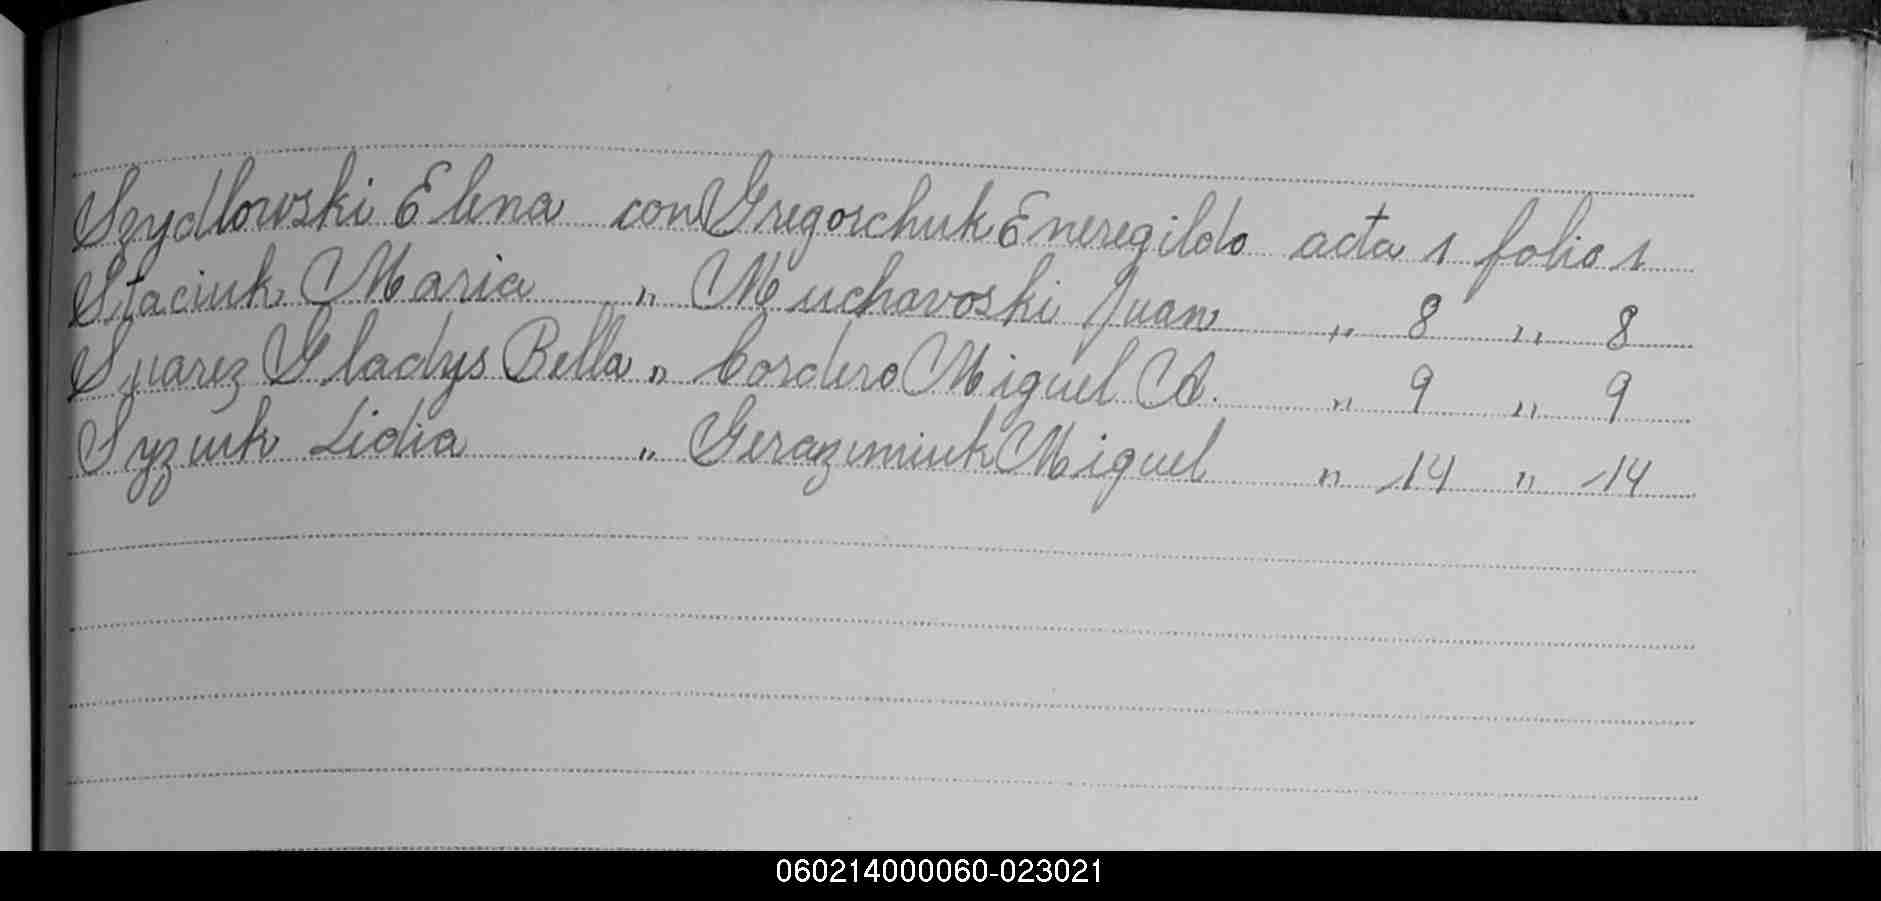 Szydlowski Elena con Gregorchuk Eneregildo acta 1 folio 1
Staciuk Maria " Muchavoski Juan " 8 " 8
Suarez Gladys Bella " Cordero Miguel A. " 9 " 9
Syzuk Lidia " Gerazimiuk Miguel " 14 " 14
060214000060-023021